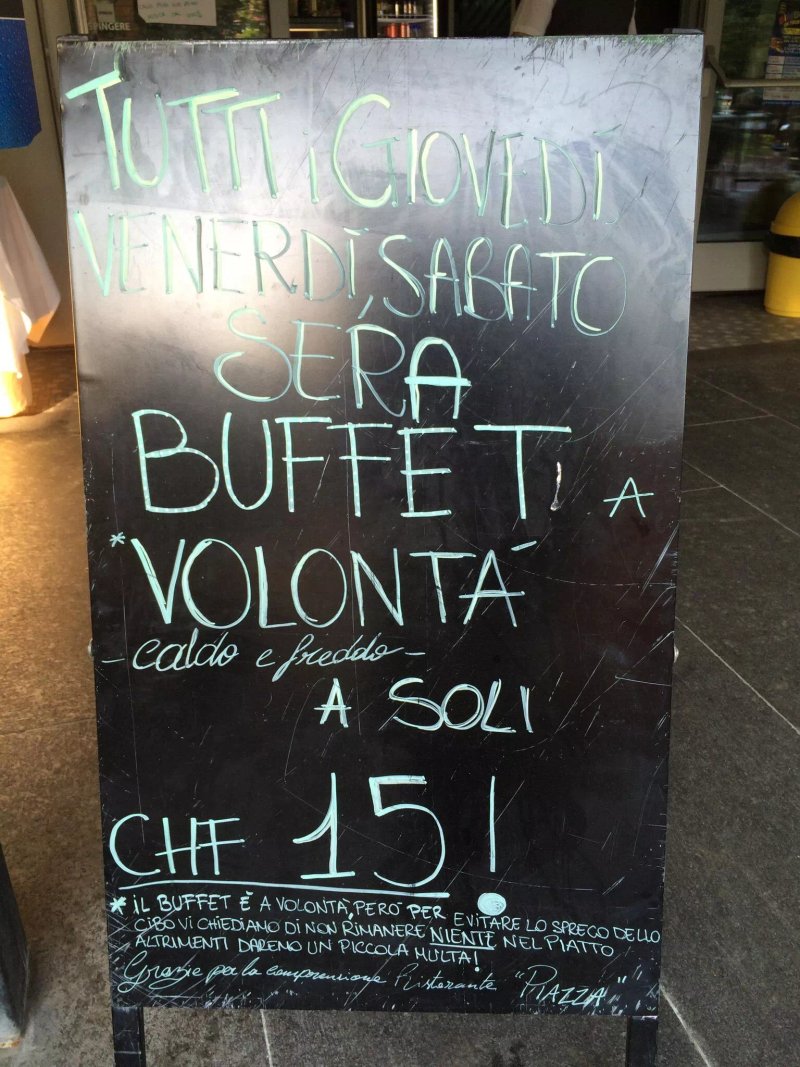 PINGERE
TUTTI i GIOVEDÌ
VENERDÌ, SABATO
SERA
BUFFETi A
*VOLONTÁ
- caldo e freddo -
A SOLI
CHF 15!
* iL BUFFET È A VOLONTÁ, PERÓ PER EVITARE LO SPRECO DELLO
CIBO VI CHIEDIAMO DI NON RIMANERE NIENTE NEL PIATTO
ALTRIMENTI DAREMO UN PICCOLA MULTA!
Grazie per la comprensione Ristorante "PIAZZA"